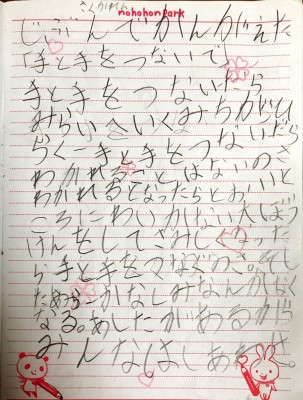 さくかれん
nohohon park
じぶんでかんがえた
「手と手をつないで」
手と手をつないだら
みらいへいくみちがひ
らく一手と手をつないだら
わかれることはないのさ
わかれるとなったらとおいと
ころにわいかない大ぼう
けんをしてさみしくなった
ら手と手をつなぐのさ。そし
たらかなしみなんかなく
なる。あしたがあるから
みんなはしあわせ。